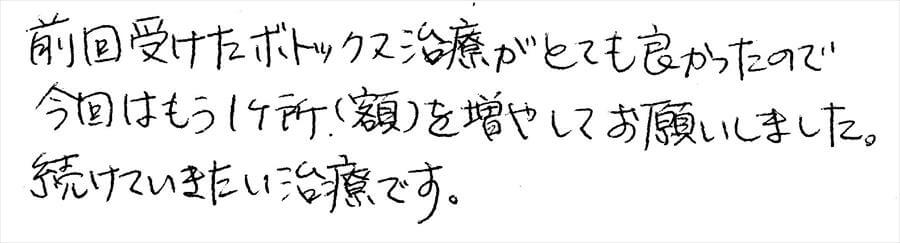 前回受けたボトックス治療がとても良かったので
今回はもう1ケ所(額)を増やしてお願いしました。
続けていきたい治療です。